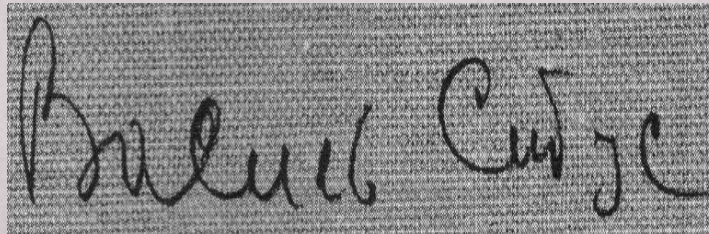 Василь Стус